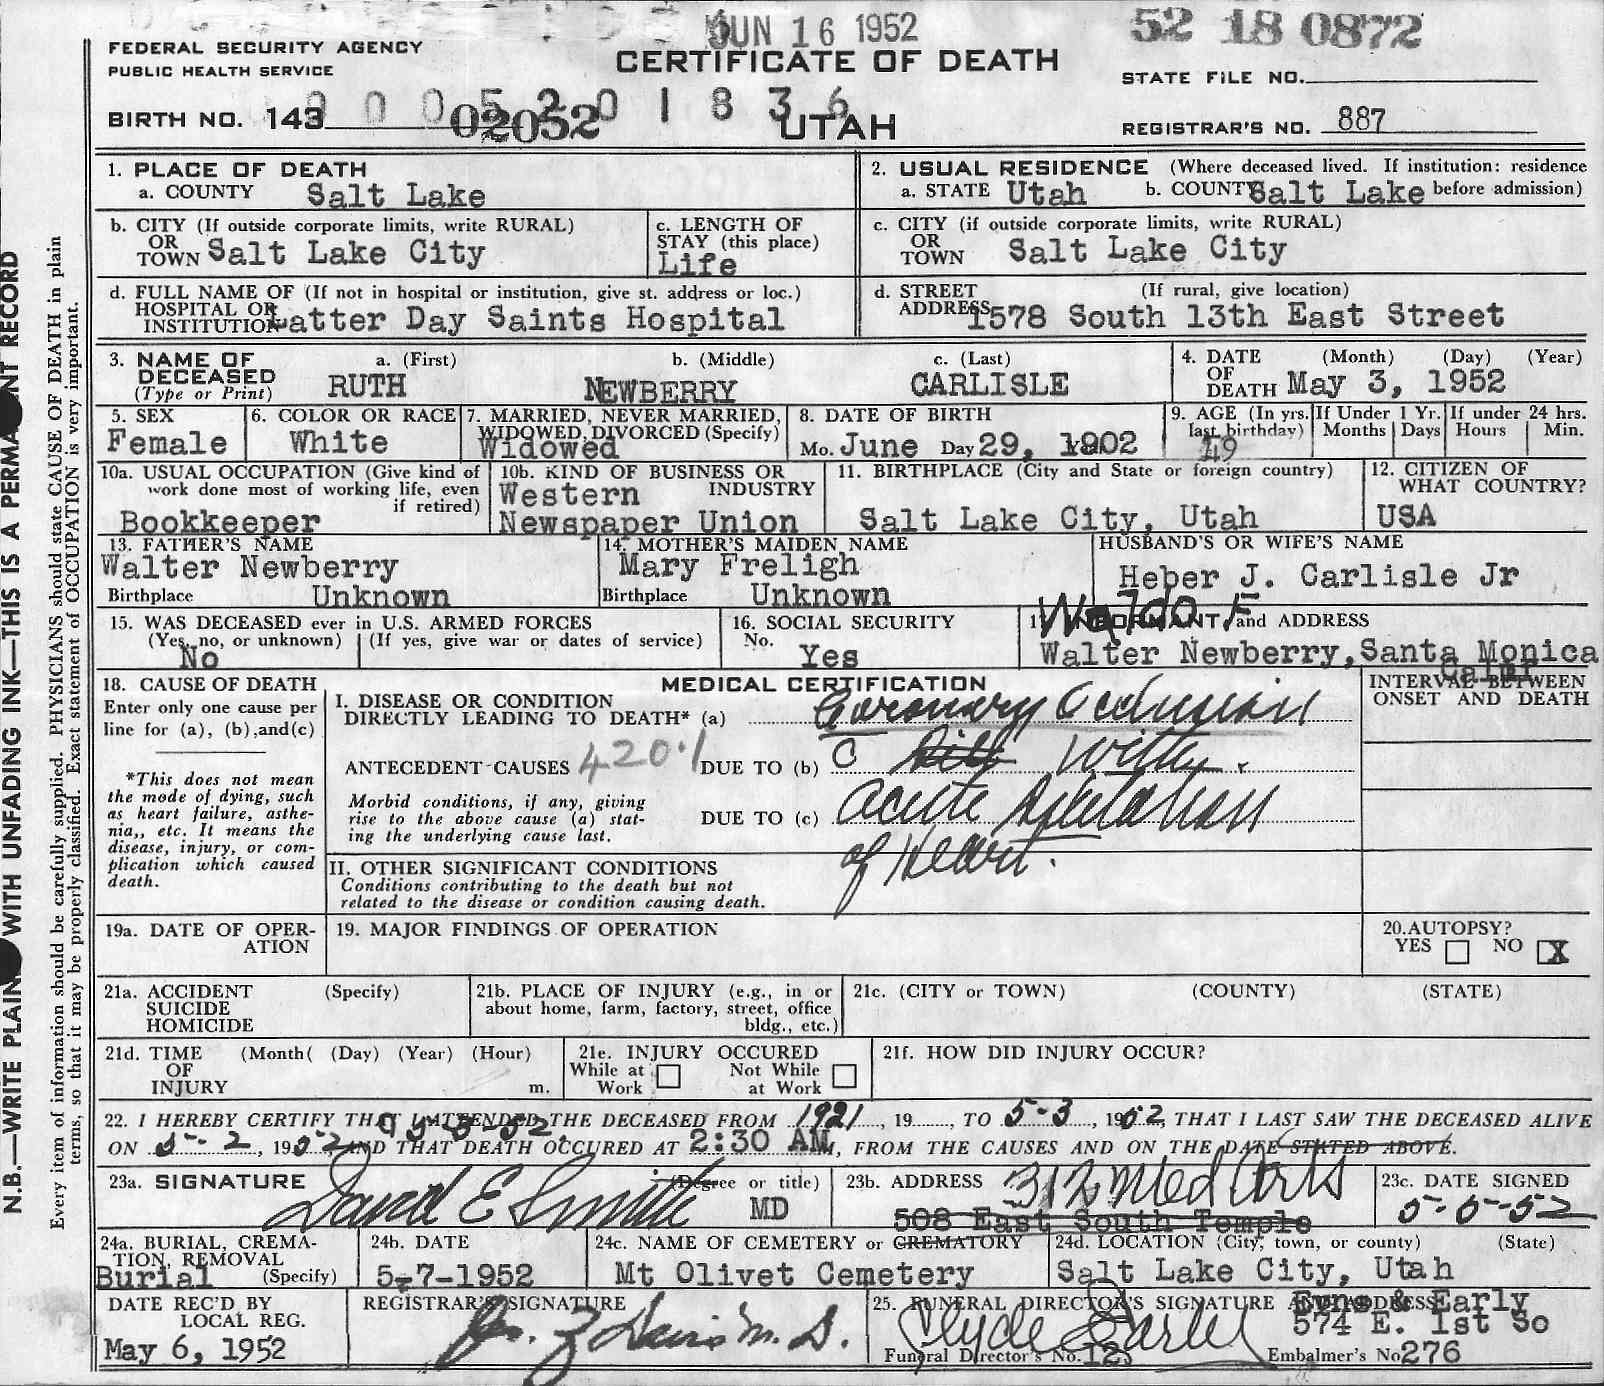 JUN 16 1952
52 18 0872
FEDERAL SECURITY AGENCY
PUBLIC HEALTH SERVICE
CERTIFICATE OF DEATH
STATE FILE NO.
BIRTH NO. 143
02052
UTAH
REGISTRAR'S NO. 887
1. PLACE OF DEATH
a. COUNTY Salt Lake
2. USUAL RESIDENCE (Where deceased lived. If institution: residence
a. STATE Utah b. COUNTY Salt Lake before admission)
b. CITY (If outside corporate limits, write RURAL)
OR
TOWN Salt Lake City
c. LENGTH OF
STAY (this place)
Life
c. CITY (if outside corporate limits, write RURAL)
OR
TOWN Salt Lake City
d. FULL NAME OF (If not in hospital or institution, give st. address or loc.)
HOSPITAL OR
INSTITUTION Latter Day Saints Hospital
d. STREET (If rural, give location)
ADDRESS 1578 South 13th East Street
3. NAME OF
DECEASED
(Type or Print)
a. (First)
RUTH
b. (Middle)
NEWBERRY
c. (Last)
CARLISLE
4. DATE (Month) (Day) (Year)
OF
DEATH May 3, 1952
5. SEX
Female
6. COLOR OR RACE
White
7. MARRIED, NEVER MARRIED,
WIDOWED, DIVORCED (Specify)
Widowed
8. DATE OF BIRTH
Mo. June Day 29, 1902
9. AGE (In yrs.
last birthday)
49
If Under 1 Yr.
Months Days
If under 24 hrs.
Hours Min.
10a. USUAL OCCUPATION (Give kind of
work done most of working life, even
if retired)
Bookkeeper
10b. KIND OF BUSINESS OR
INDUSTRY
Western
Newspaper Union
11. BIRTHPLACE (City and State or foreign country)
Salt Lake City, Utah
12. CITIZEN OF
WHAT COUNTRY?
USA
13. FATHER'S NAME
Walter Newberry
Birthplace Unknown
14. MOTHER'S MAIDEN NAME
Mary Freligh
Birthplace Unknown
HUSBAND'S OR WIFE'S NAME
Heber J. Carlisle Jr
15. WAS DECEASED ever in U.S. ARMED FORCES
(Yes, no, or unknown) (If yes, give war or dates of service)
No
16. SOCIAL SECURITY
No.
Yes
Waldo F
17. INFORMANT and ADDRESS
Walter Newberry, Santa Monica
Calif
18. CAUSE OF DEATH
Enter only one cause per
line for (a), (b), and(c)
*This does not mean
the mode of dying, such
as heart failure, asthe-
nia,, etc. It means the
disease, injury, or com-
plication which caused
death.
MEDICAL CERTIFICATION
I. DISEASE OR CONDITION
DIRECTLY LEADING TO DEATH* (a) Coronary Occlusion
ANTECEDENT CAUSES 420.1 DUE TO (b) C with
Morbid conditions, if any, giving
rise to the above cause (a) stat-
ing the underlying cause last.
DUE TO (c) acute dilatation
of Heart.
II. OTHER SIGNIFICANT CONDITIONS
Conditions contributing to the death but not
related to the disease or condition causing death.
INTERVAL BETWEEN
ONSET AND DEATH
19a. DATE OF OPER-
ATION
19. MAJOR FINDINGS OF OPERATION
20.AUTOPSY?
YES NO X
21a. ACCIDENT (Specify)
SUICIDE
HOMICIDE
21b. PLACE OF INJURY (e.g., in or
about home, farm, factory, street, office
bldg., etc.)
21c. (CITY or TOWN) (COUNTY) (STATE)
21d. TIME (Month( (Day) (Year) (Hour)
OF
INJURY m.
21e. INJURY OCCURED
While at
Work
Not While
at Work
21f. HOW DID INJURY OCCUR?
22. I HEREBY CERTIFY THAT I ATTENDED THE DECEASED FROM 1921, 19 TO 5-3, 1952, THAT I LAST SAW THE DECEASED ALIVE
ON 5-2, 1952 AND THAT DEATH OCCURED AT 2:30 AM, FROM THE CAUSES AND ON THE DATE STATED ABOVE.
23a. SIGNATURE (Degree or title)
David E Smith MD
23b. ADDRESS 312 Med Arts
508 East South Temple
23c. DATE SIGNED
5-5-52
24a. BURIAL, CREMA-
TION, REMOVAL
Burial (Specify)
24b. DATE
5-7-1952
24c. NAME OF CEMETERY or CREMATORY
Mt Olivet Cemetery
24d. LOCATION (City, town, or county) (State)
Salt Lake City, Utah
DATE REC'D BY
LOCAL REG.
May 6, 1952
REGISTRAR'S SIGNATURE
25. FUNERAL DIRECTOR'S SIGNATURE AND ADDRESS
Clyde Early
Evns & Early
574 E. 1st So
Funeral Director's No. 123
Embalmer's No 276
N.B.—WRITE PLAINLY WITH UNFADING INK—THIS IS A PERMANENT RECORD
Every item of information should be carefully supplied. PHYSICIANS should state CAUSE OF DEATH in plain
terms, so that it may be properly classified. Exact statement of OCCUPATION is very important.